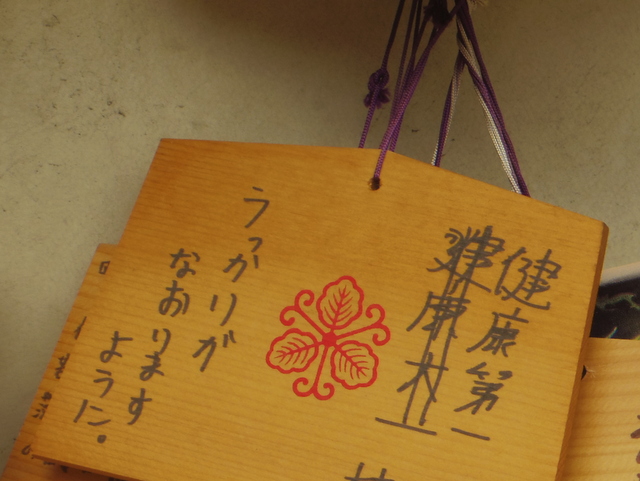 健康第一
うっかりが
なおります
ように。